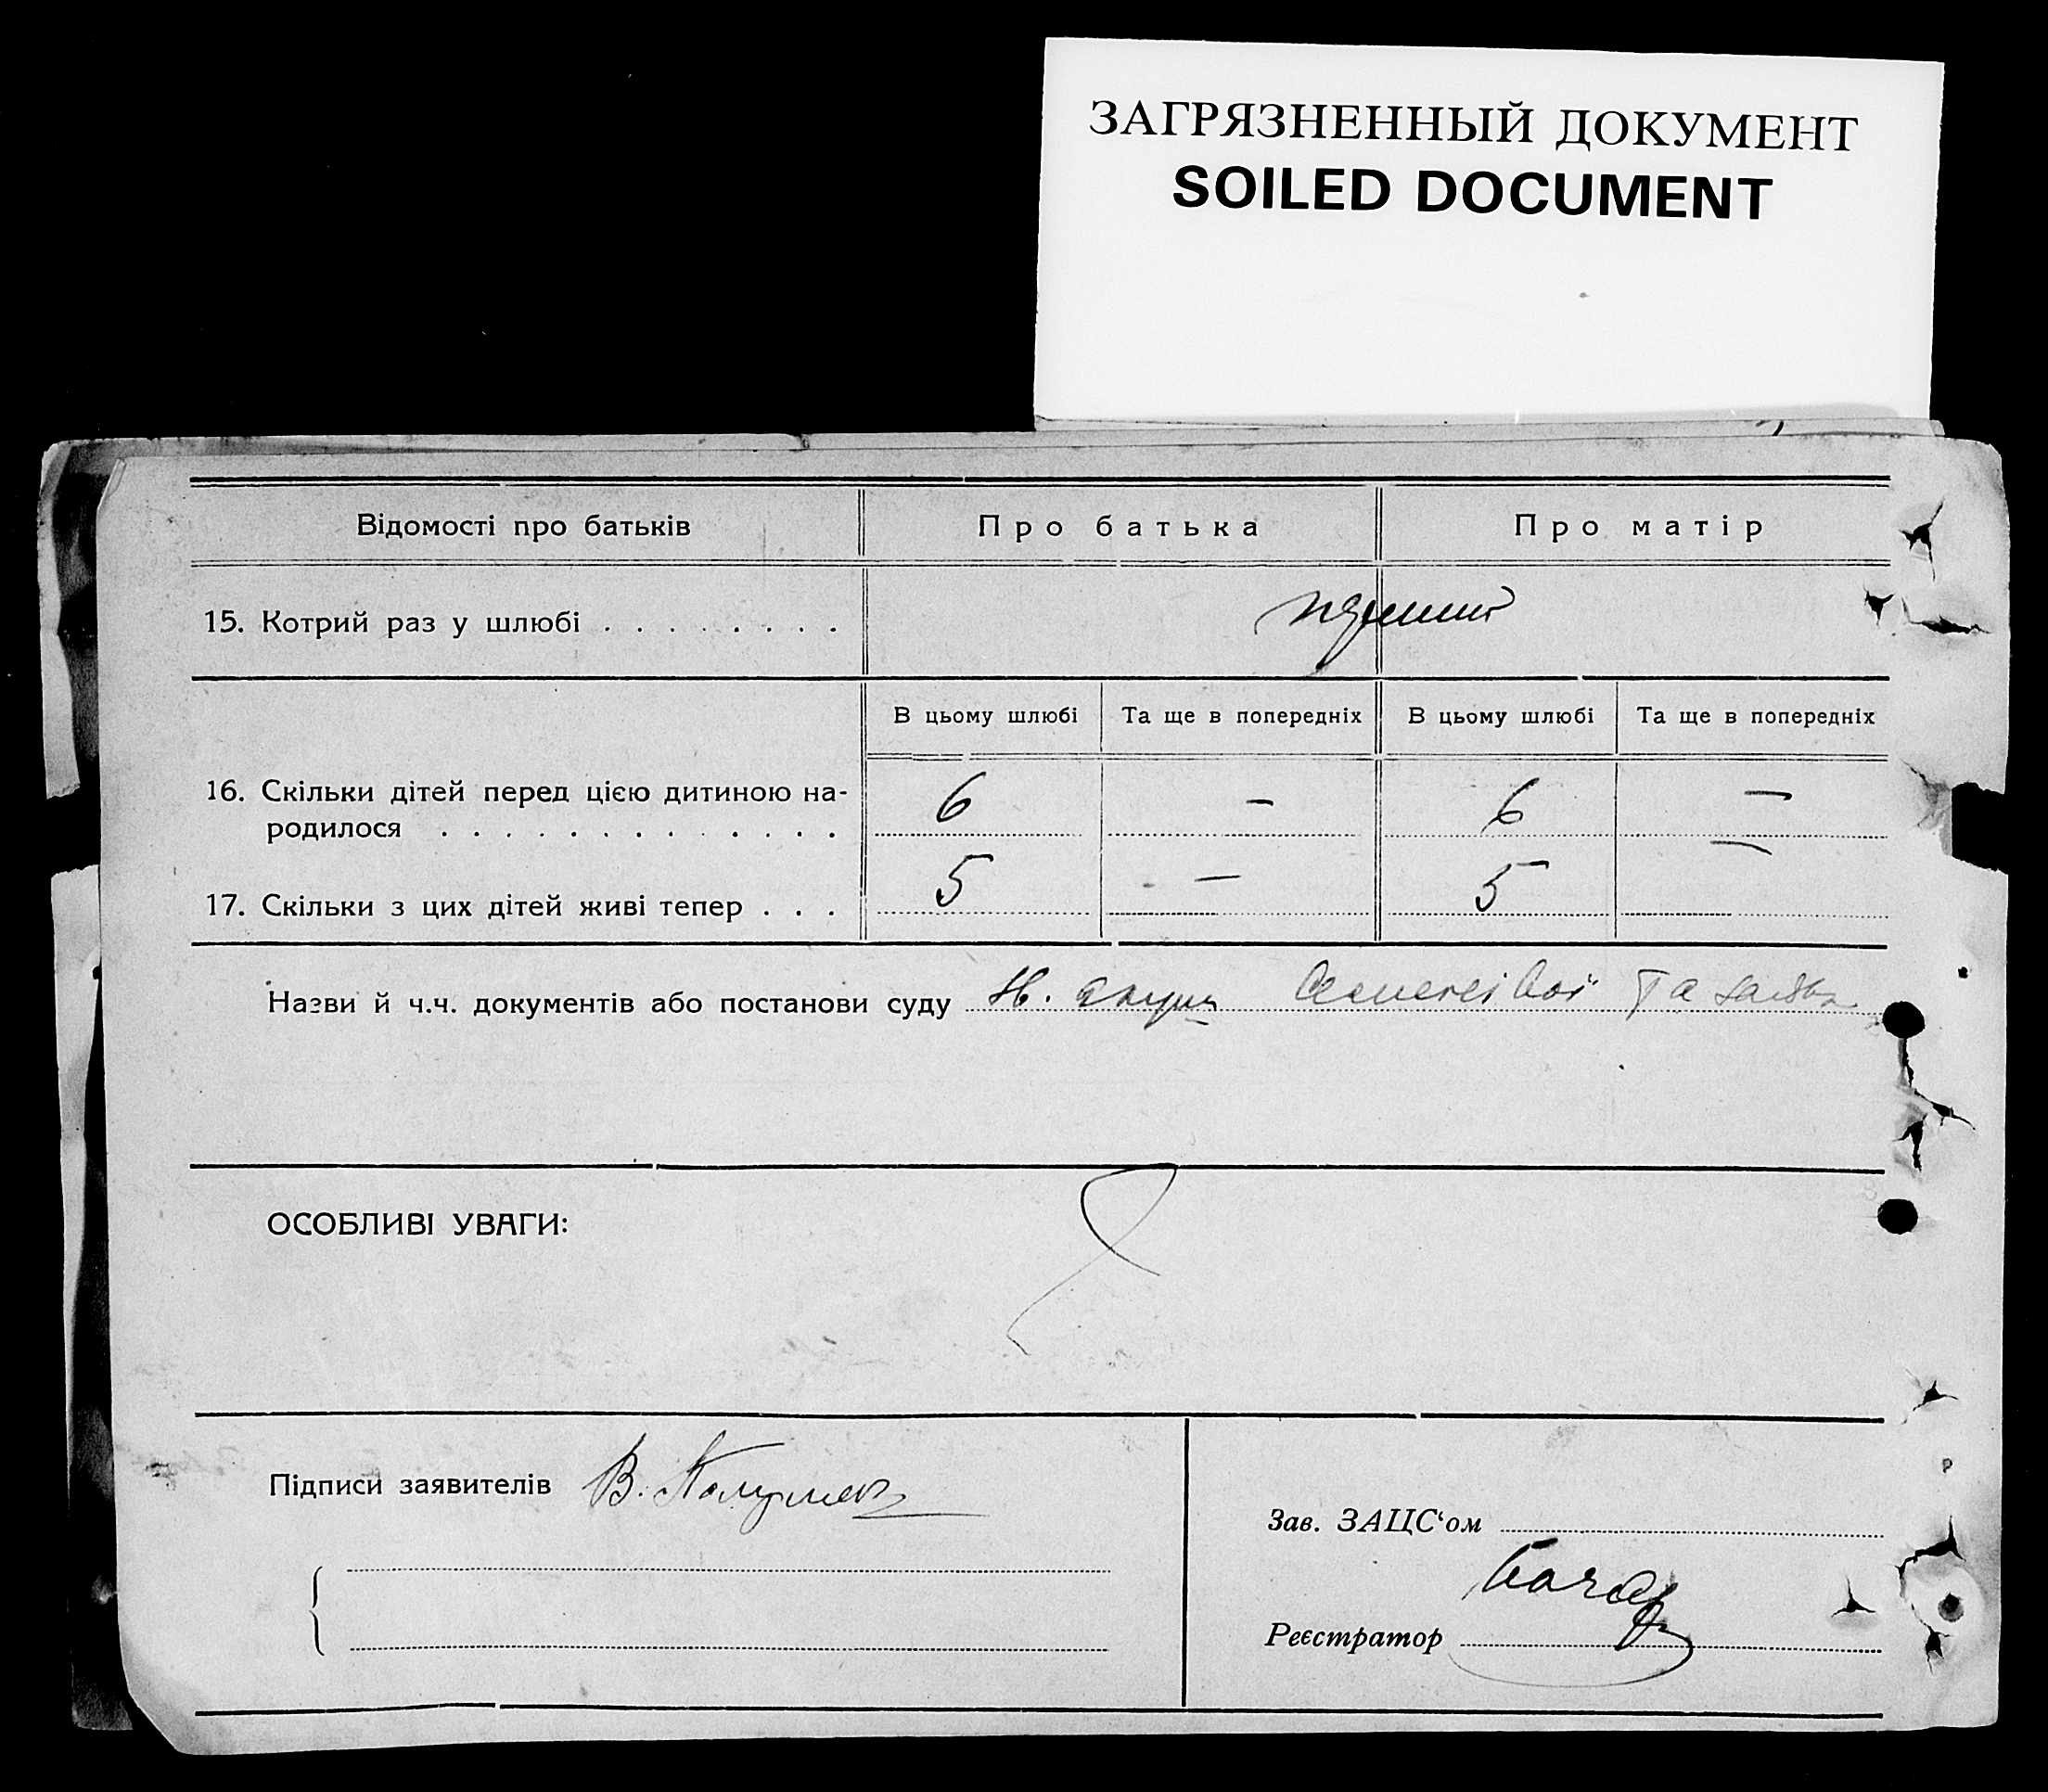 ЗАГРЯЗНЕННЫЙ ДОКУМЕНТ
SOILED DOCUMENT
Відомості про батьків Про батька Про матір
15. Котрий раз у шлюбі . . . . . . . .
В цьому шлюбі Та ще в попередніх В цьому шлюбі Та ще в попередніх
16. Скільки дітей перед цією дитиною на-
родилося . . . . . . . . . . . . . 6 – 6 –
17. Скільки з цих дітей живі тепер . . . 5 – 5 –
Назви й ч.ч. документів або постанови суду та
ОСОБЛИВІ УВАГИ:
Підписи заявителів В.
Зав. ЗАЦС‘ом
Реєстратор